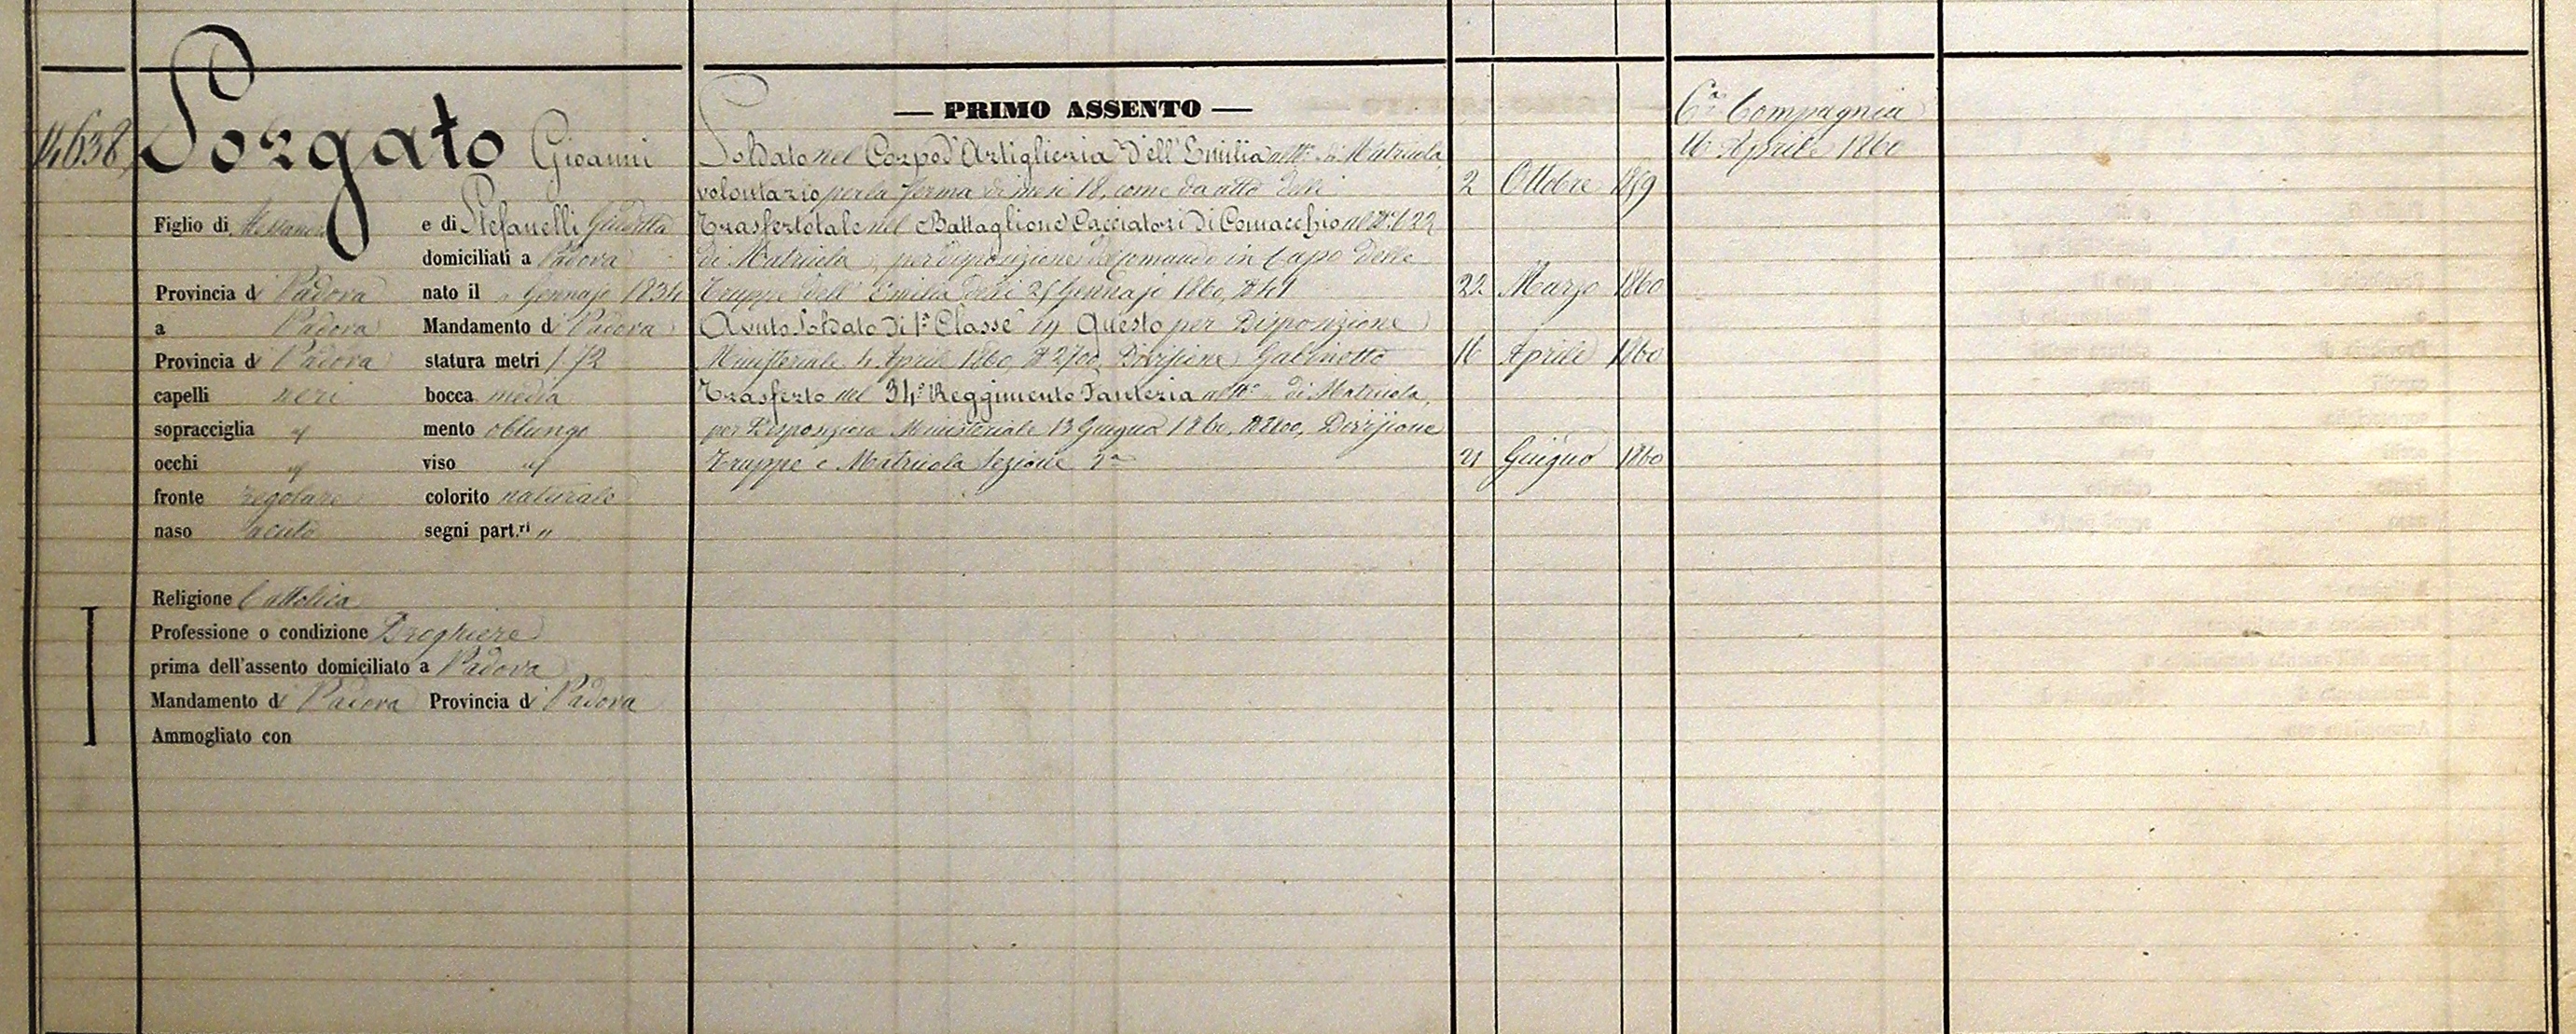 14638
Sorgato Gioanni
Figlio di Alessandro e di Stefanelli Giuditta
domiciliati a Padova
Provincia di Padova nato il " Gennajo 1834
a Padova Mandamento di Padova
Provincia di Padova statura metri 1 72
capelli neri bocca media
sopracciglia mento oblungo
occhi viso
fronte regolare colorito naturale
naso acuto segni part.ri "
Religione Cattolica
Professione o condizione Droghiere
prima dell'assento domiciliato a Padova
Mandamento di Padova Provincia di Padova
Ammogliato con
— PRIMO ASSENTO —
Soldato nel Corpo d'Artiglieria dell'Emilia al N° di Matricola,
volontario per la ferma di mesi 18, come da atto delli 2 Ottobre 1859
Trasferto tale nel Battaglione Cacciatori di Comacchio al N° 622
di Matricola, per disposizione del comando in Capo delle
Truppe dell'Emilia delli 25 Gennajo 1860, N 41 22 Marzo 1860
Avuto Soldato di 1ª Classe in Questo per Disposizione
Ministeriale 4 Aprile 1860, N 2700, Divisione Gabinetto 16 Aprile 1860
Trasferto nel 34° Reggimento Fanteria al N° " di Matricola,
per Disposizione Ministeriale 13 Giugno 1860, Divisione
Truppe e Matricola Sezione 2ª 21 Giugno 1860
6ª Compagnia
16 Aprile 1860